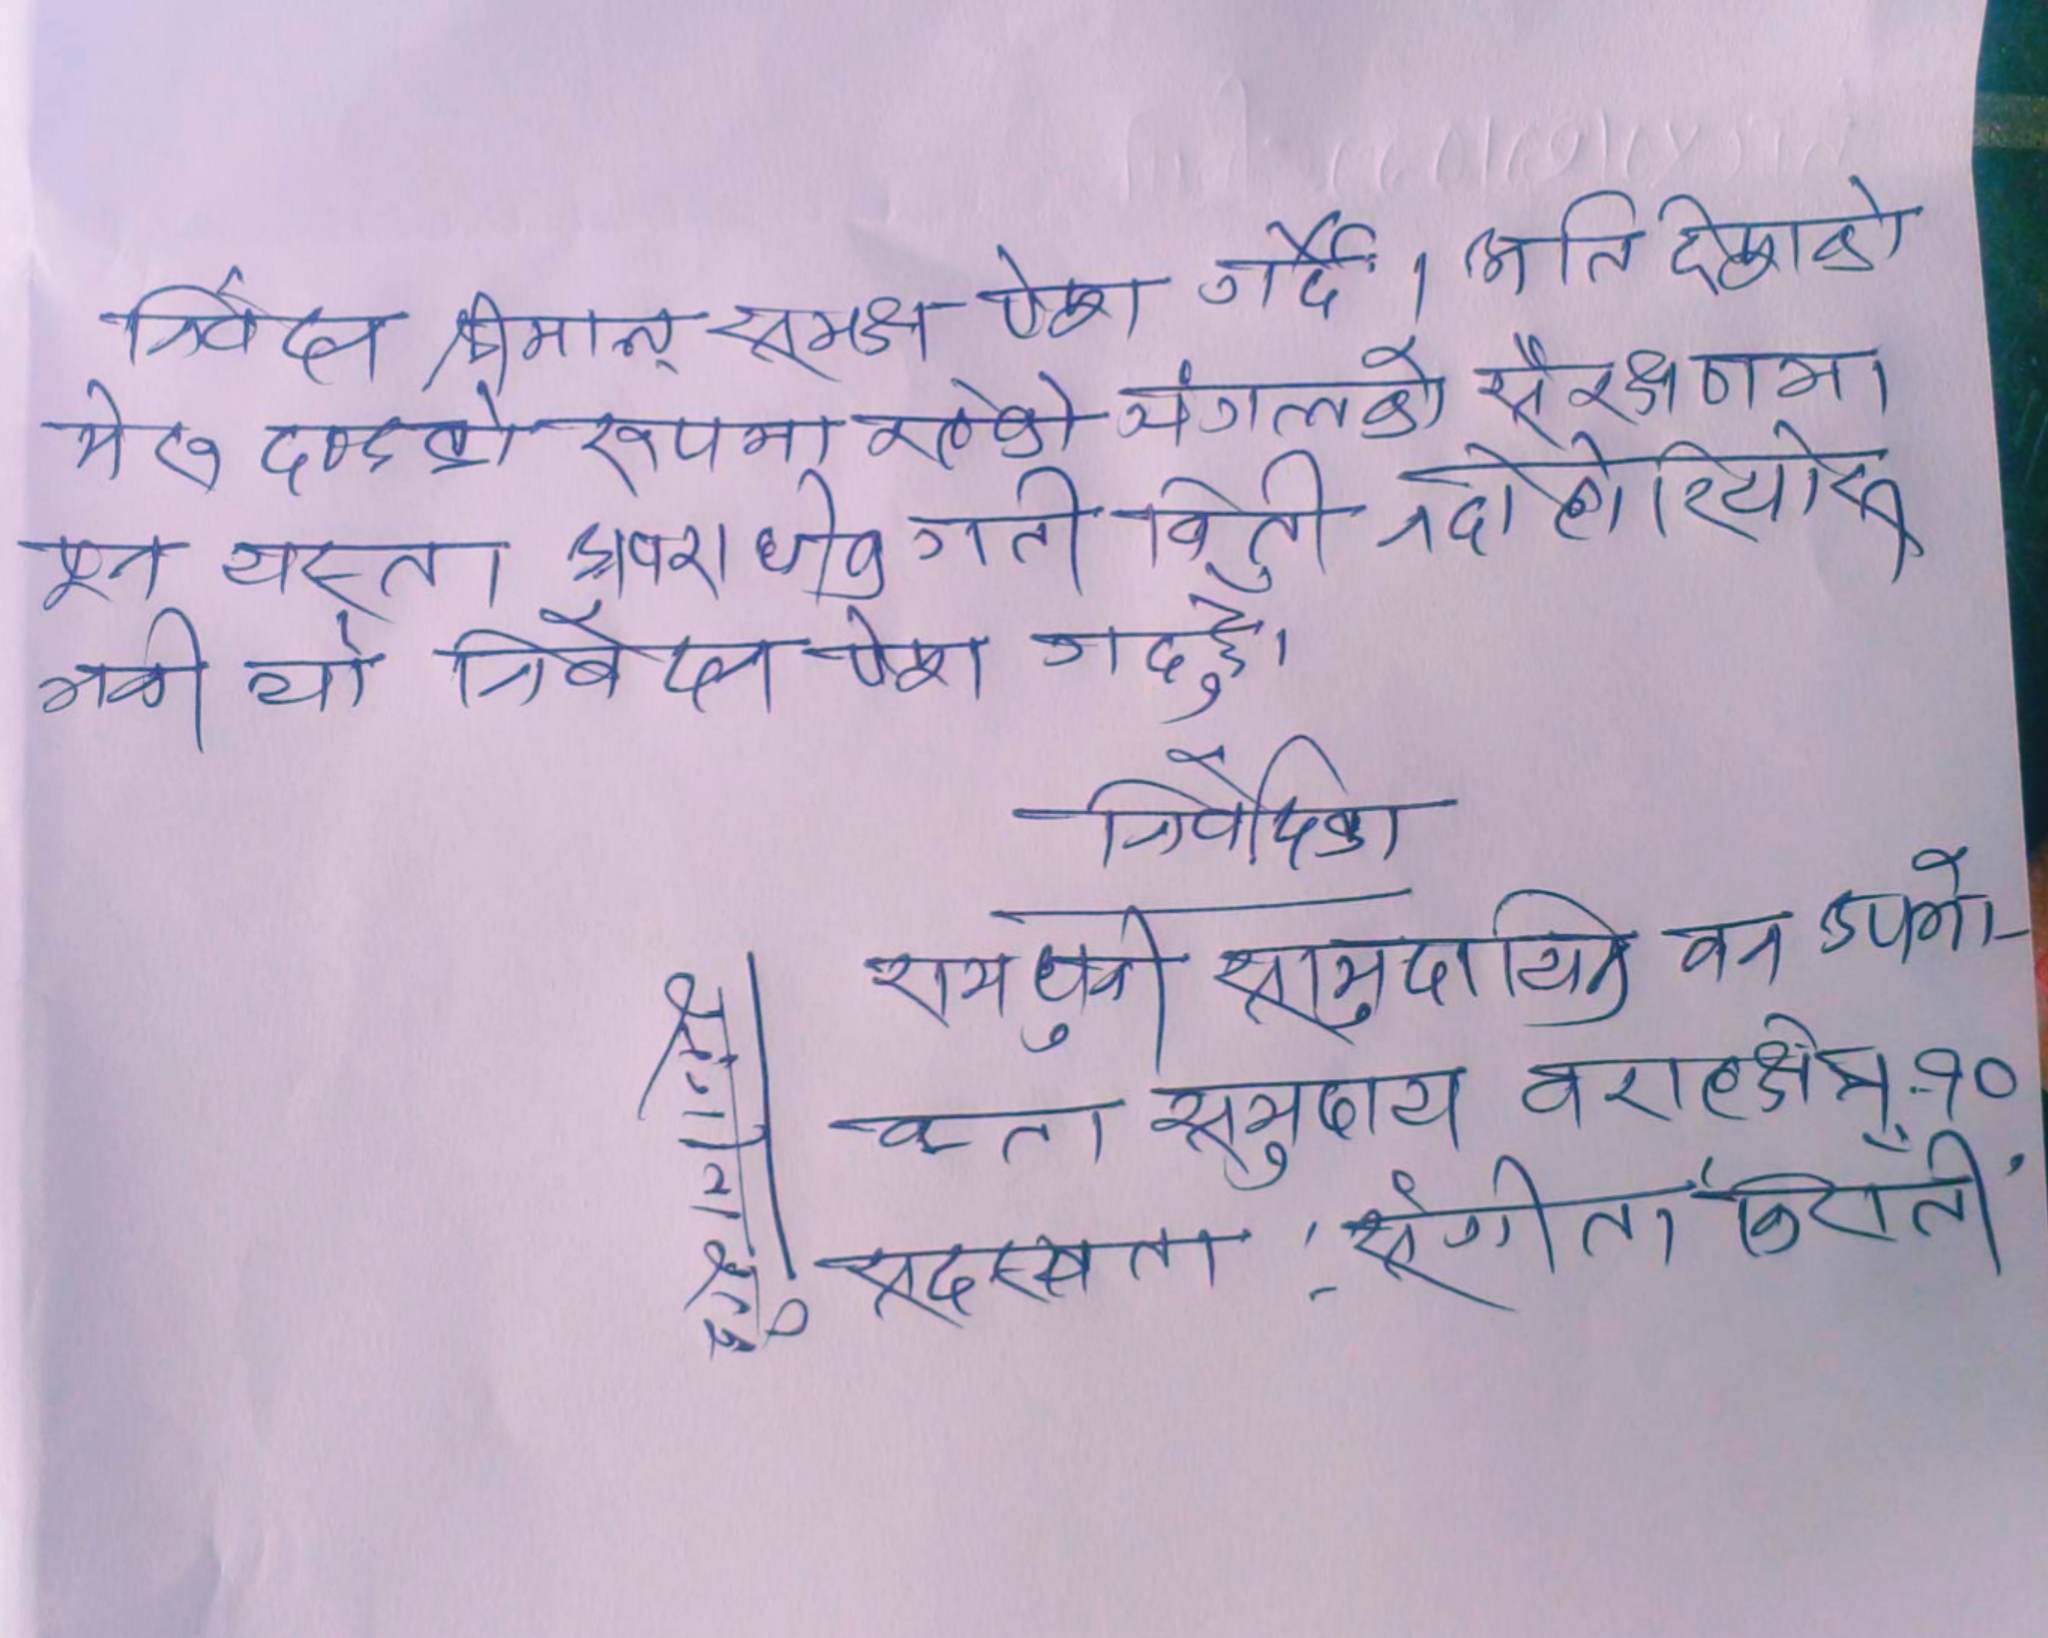 निवेदन श्रीमान् समक्ष पेश गर्दै । अनि देशको
मेरु दण्डको रूपमा रहेको जंगलको संरक्षणमा
पून यस्ता अपराधीक गती विती नदोहोरियोस्
भनी यो निवेदन पेश गर्दछु।
निवेदिका
रामधुनी सामुदायिक वन उपभो-
क्ता समुदाय बराहक्षेत्र-१०
सदस्यता : संगीता किराती